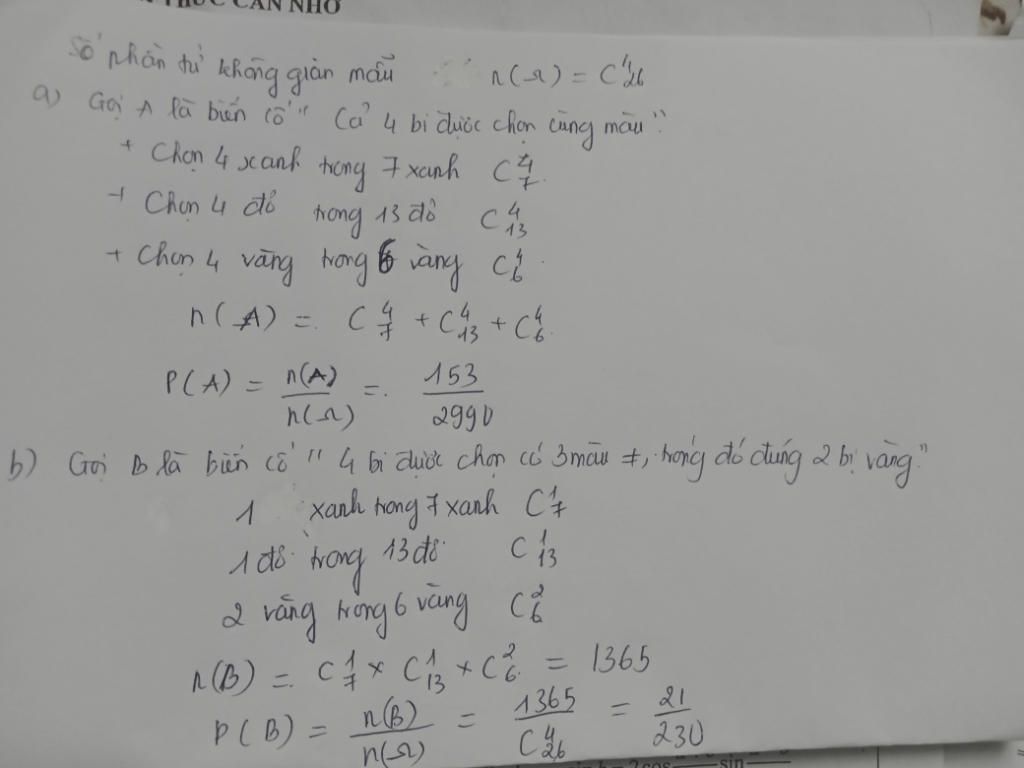 THỨC CẦN NHỚ
Số phần tử không gian mẫu n(Ω) = C⁴₂₆
a) Gọi A là biến cố " Cả 4 bi được chọn cùng màu".
+ Chọn 4 xanh trong 7 xanh C⁴₇.
+ Chọn 4 đỏ trong 13 đỏ C⁴₁₃
+ Chọn 4 vàng trong 6 vàng C⁴₆.
n(A) = C⁴₇ + C⁴₁₃ + C⁴₆.
P(A) = n(A)/n(Ω) = 153/2990
b) Gọi B là biến cố " 4 bi được chọn có 3 màu ≠, trong đó đúng 2 bi vàng."
1 xanh trong 7 xanh C¹₇
1 đỏ trong 13 đỏ C¹₁₃
2 vàng trong 6 vàng C²₆
n(B) = C¹₇ × C¹₁₃ × C²₆ = 1365
P(B) = n(B)/n(Ω) = 1365/C⁴₂₆ = 21/230